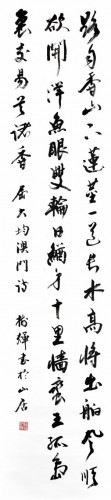 路自香山下蓮莖一道長水高將出舶風順
欲開洋魚眼雙輪日鰌身十里牆蠻王孤島
裏交易首諸香 屈大均澳門詩 輝書於山居